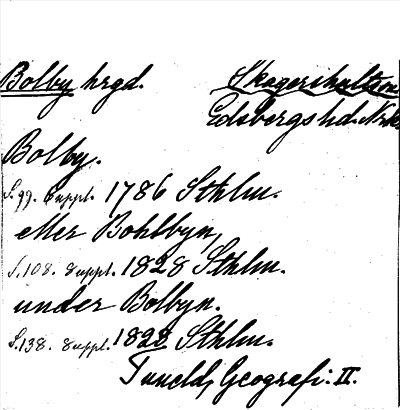 Bolby hrgd. Skagershultson
Edsbergs hd. Nrk.
Bolby.
S. 99. Suppl. 1786 Sthlm.
eller Bohlbyn,
S. 108. Suppl. 1828 Sthlm.
under Bolbyn.
S. 138. Suppl. 1828 Sthlm.
Tuneld, Geografi. II.